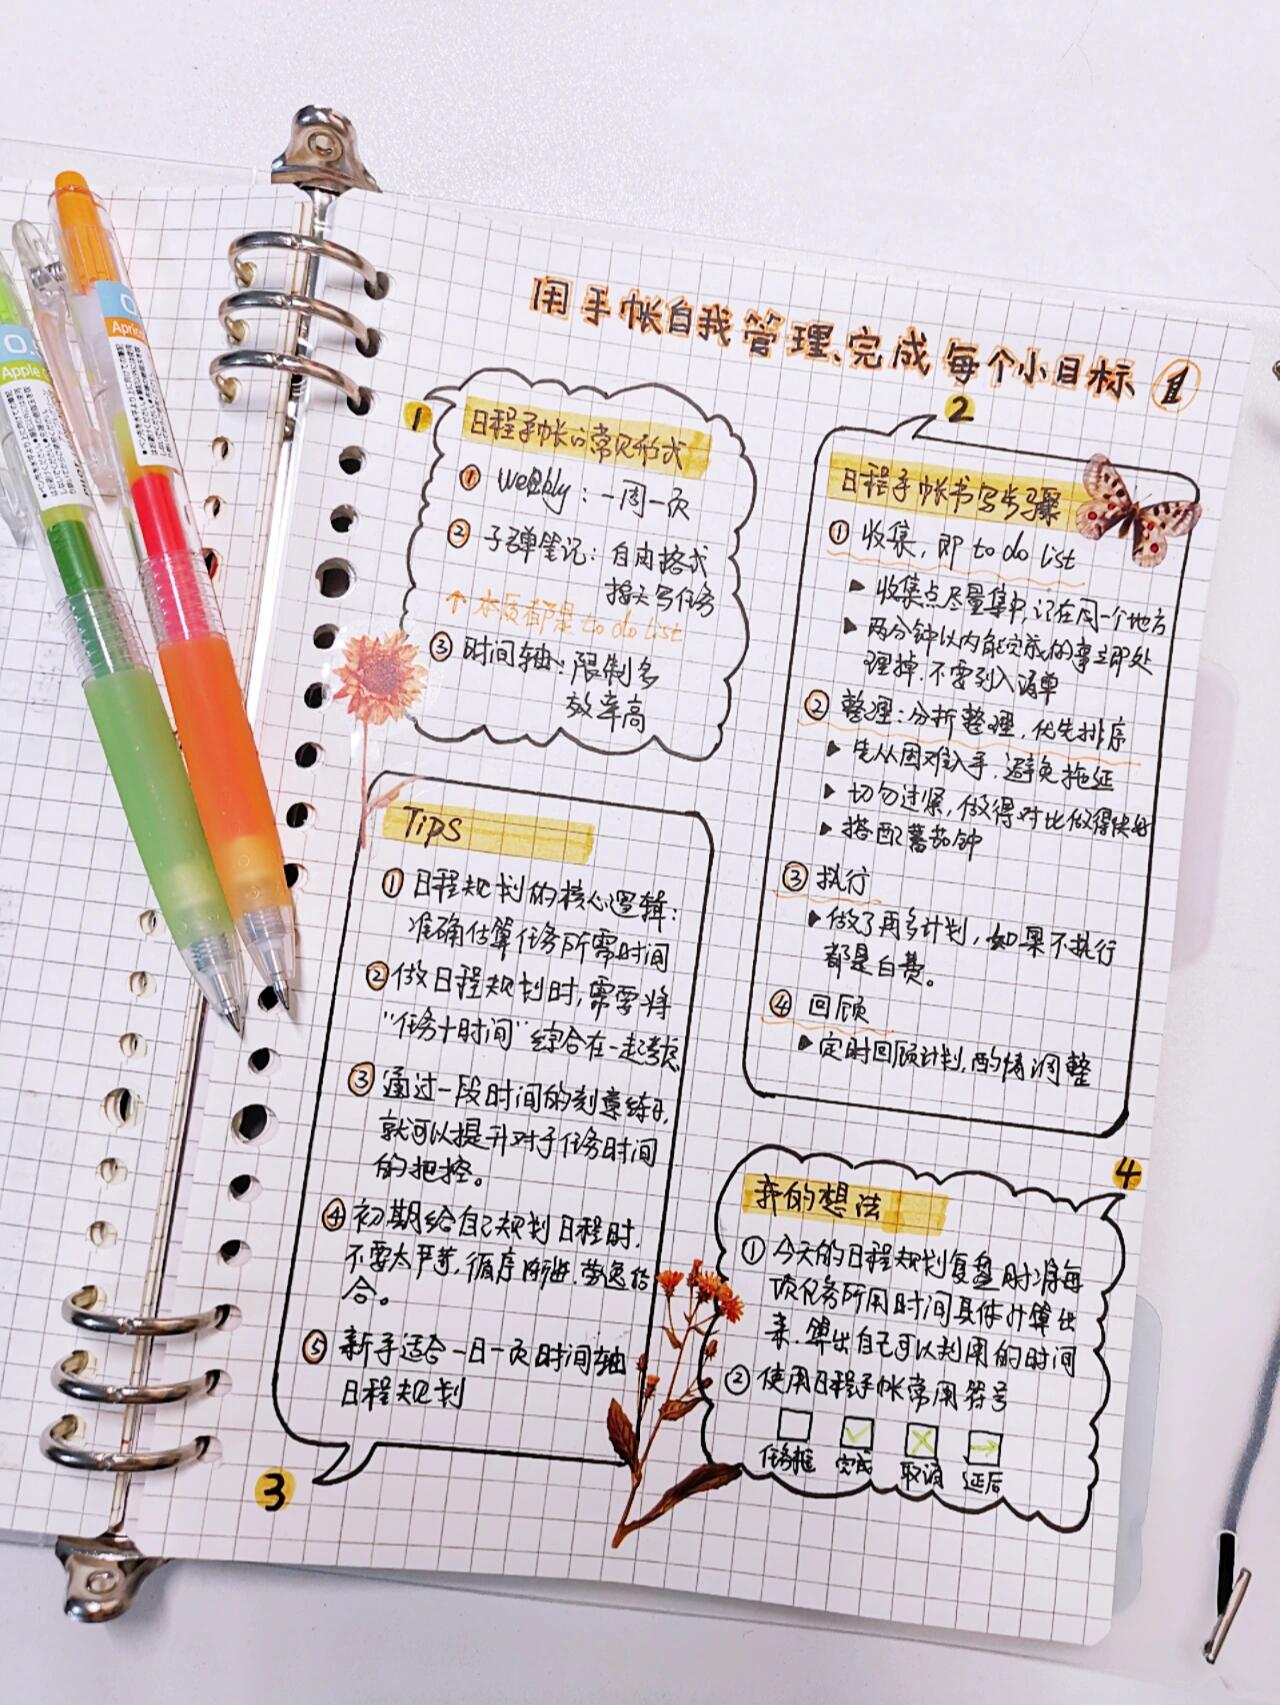 用手帐自我管理、完成每个小目标 1
1
日程手帐的常见形式
① weekly：一周一页
② 子弹笔记：自由格式
按天写任务
↑本质都是to do list
③ 时间轴：限制多
效率高
2
日程手帐书写步骤
① 收集，即 to do list
▶ 收集点尽量集中，记在同一个地方
▶ 两分钟以内能完成的事立即处
理掉.不要列入清单
② 整理：分析整理，优先排序
▶ 先从困难入手.避免拖延
▶ 切勿过紧，做得对比做得快好
▶ 搭配番茄钟
③ 执行
▶ 做了再多计划，如果不执行
都是白费。
④ 回顾
▶ 定时回顾计划，酌情调整
Tips
① 日程规划的核心逻辑：
准确估算任务所需时间
② 做日程规划时，需要将
“任务+时间”综合在一起考虑
③ 通过一段时间的刻意练习，
就可以提升对于任务时间
的把控。
④ 初期给自己规划日程时，
不要太严苛，循序渐进，劳逸结
合。
⑤ 新手适合一日一页时间轴
日程规划
3
4
我的想法
① 今天的日程规划复盘时将每
项任务所用时间具体计算出
来.算出自己可以利用的时间
② 使用日程手帐常用符号
任务框 完成 取消 延后
0.
Apple
0.
Apri